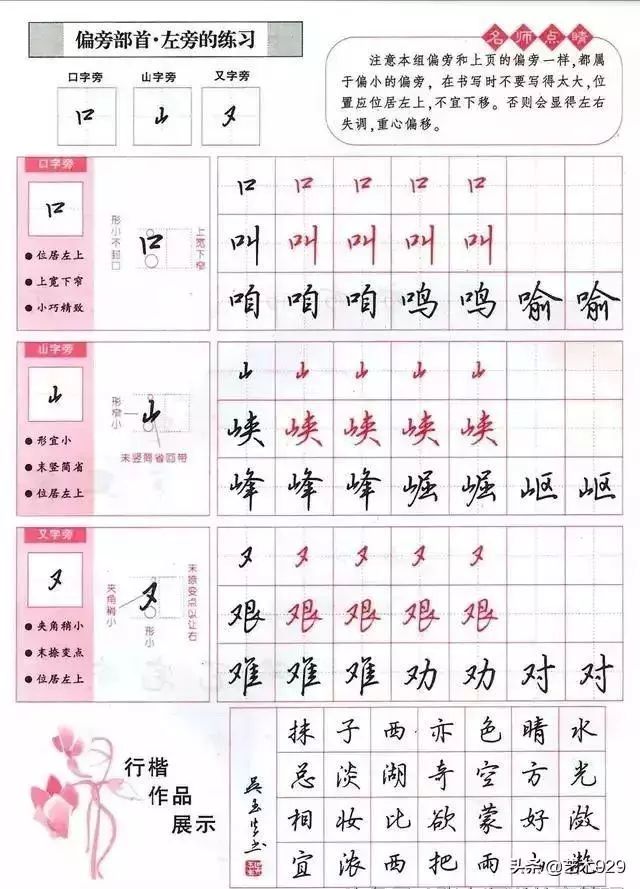 偏旁部首·左旁的练习
名师点睛
注意本组偏旁和上页的偏旁一样,都属
于偏小的偏旁，在书写时不要写得太大,位
置应位居左上,不宜下移。否则会显得左右
失调,重心偏移。
口字旁 山字旁 又字旁
口 山 又
口字旁
口
位居左上
上宽下窄
小巧精致
形小不封口
口
上宽下窄
口 口 口 口 口
叫 叫 叫 叫 叫
咱 咱 咱 鸣 鸣 喻 喻
山字旁
山
形宜小
末竖简省
位居左上
形窄小
山
末竖简省回带
山 山 山 山 山
峡 峡 峡 峡 峡
峰 峰 峰 崛 崛 岖 岖
又字旁
又
夹角稍小
末捺变点
位居左上
夹角稍小
又
形小
末捺变点以让右
又 又 又 又 又
艰 艰 艰 艰 艰
难 难 难 劝 劝 对 对
行楷
作品
展示
水光潋滟
晴方好山
色空蒙雨
亦奇欲把
西湖比西
子淡妆浓
抹总相宜
吴玉生书
头条@艺心929